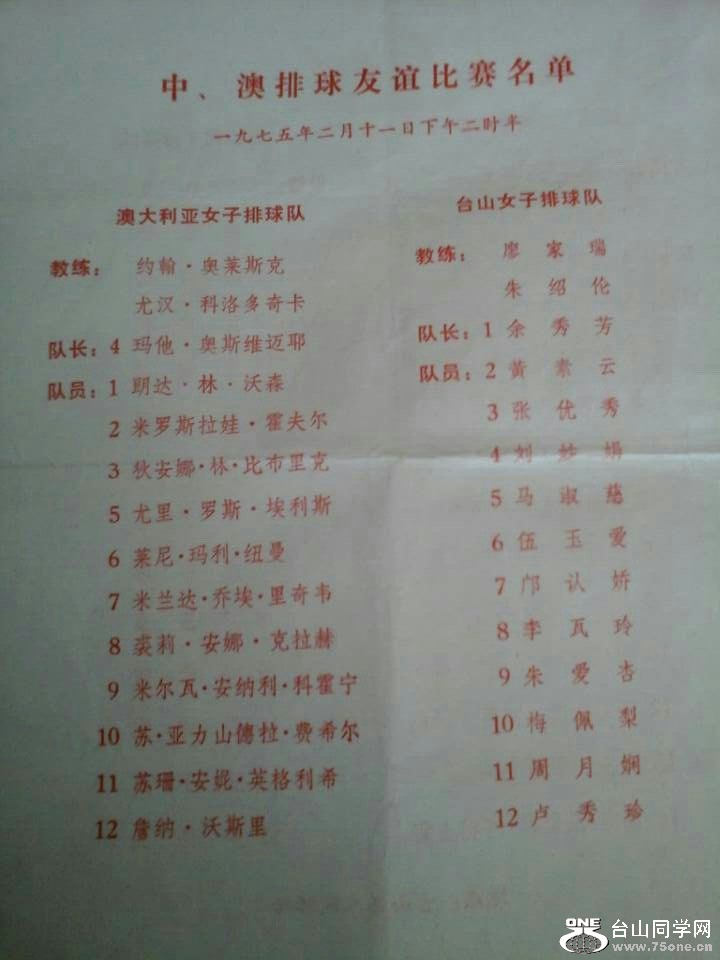 中、澳排球友谊比赛名单
一九七五年二月十一日下午二时半
澳大利亚女子排球队
教练：约翰·奥莱斯克
尤汉·科洛多奇卡
队长：4 玛他·奥斯维迈耶
队员：1 朗达·林·沃森
2 米罗斯拉娃·霍夫尔
3 狄安娜·林·比布里克
5 尤里·罗斯·埃利斯
6 莱尼·玛利·纽曼
7 米兰达·乔埃·里奇韦
8 裘莉·安娜·克拉赫
9 米尔瓦·安纳利·科霍宁
10 苏·亚力山德拉·费希尔
11 苏珊·安妮·英格利希
12 詹纳·沃斯里
台山女子排球队
教练：廖家瑞
朱绍伦
队长：1 余秀芳
队员：2 黄素云
3 张优秀
4 刘妙娟
5 马淑慈
6 伍玉爱
7 邝认娇
8 李瓦玲
9 朱爱杏
10 梅佩梨
11 周月娴
12 卢秀珍
ONE 台山同学网
www.75one.cn